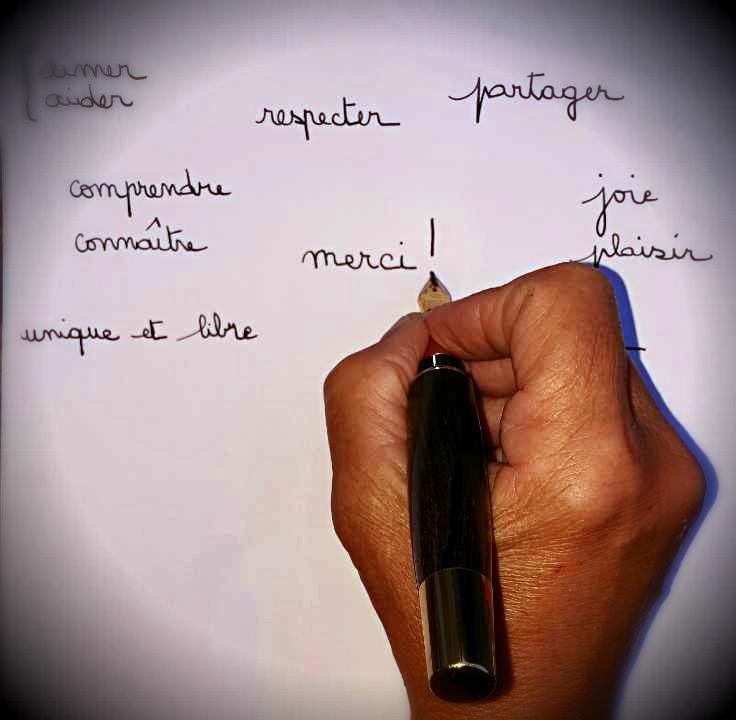 aimer
aider
respecter
partager
comprendre
connaître
joie
plaisir
merci !
unique et libre